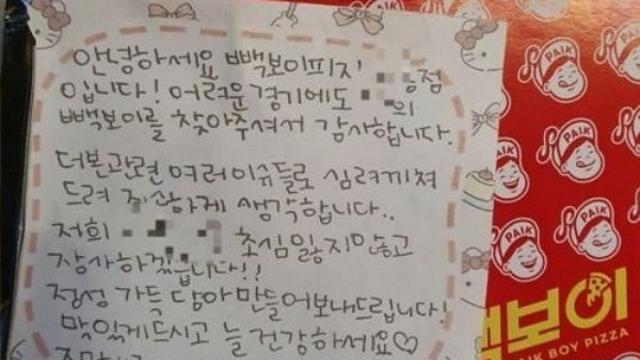 안녕하세요 빽보이피자
점
입니다! 어려운 경기에도 의
빽보이를 찾아주셔서 감사합니다.
더본관련 여러이슈들로 심려끼쳐
드려 죄송하게 생각합니다..
저희 초심잃지않고
장사하겠습니다!!
정성 가득 담아 만들어보내드립니다!
맛있게드시고 늘 건강하세요♡
PAIK
PAIK
PAIK
PAIK
PAIK
PAIK
빽보이
PAIK BOY PIZZA